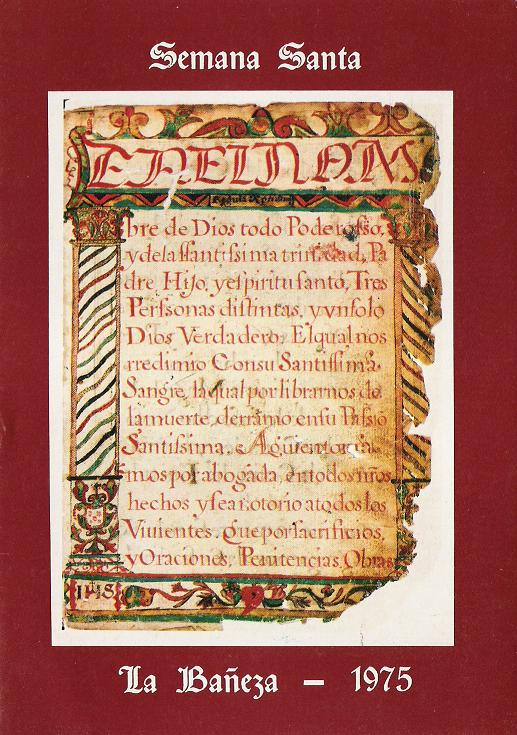 Semana Santa
ENELNOM
bre de Dios todo Poderosso,
y dela ssantissima trinidad, Pa
dre, Hijo, y espiritu santo, Tres
Perssonas distintas, y vn solo
Dios Verdadero, El qual nos
rredimio Con su Santissima
Sangre, la qual por librarnos de
la muerte, derramo en su Passio
Santissima. A quien toma
mos por abogada, en todos nros
hechos y sea notorio a todos los
Vivientes. que por sacrificios,
y Oraciones, Penitencias, Obras
La Bañeza – 1975